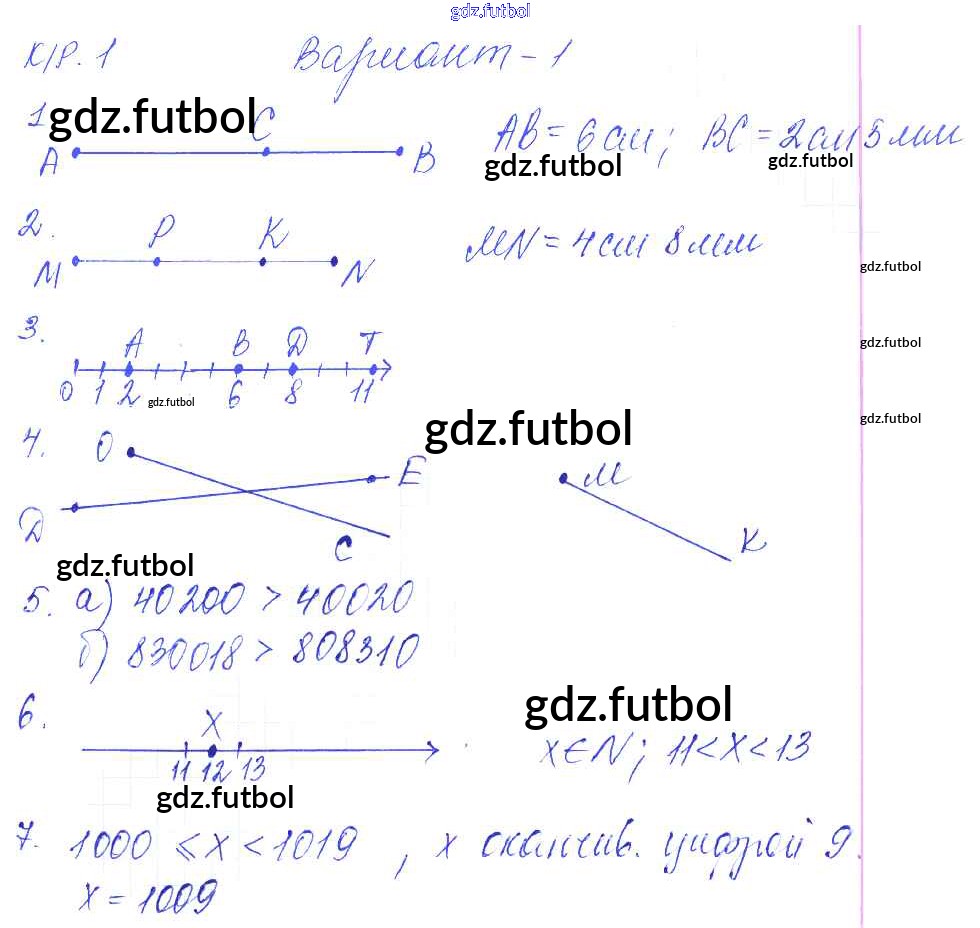 gdz.futbol
К/Р. 1 Вариант-1
1 gdz.futbol C
A B AB = 6 см; BC = 2 см 5 мм
gdz.futbol gdz.futbol
2. P K MN = 4 см 8 мм
M N
gdz.futbol
3. A B D T
gdz.futbol
0 1 2 6 8 11
gdz.futbol
gdz.futbol
gdz.futbol
4. O E M
D C K
gdz.futbol
5. а) 40200 > 40020
б) 830018 > 808310
6. X
gdz.futbol
11 12 13 x∈N; 11<x<13
gdz.futbol
7. 1000 ⩽ x < 1019, x оканчив. цифрой 9.
x = 1009